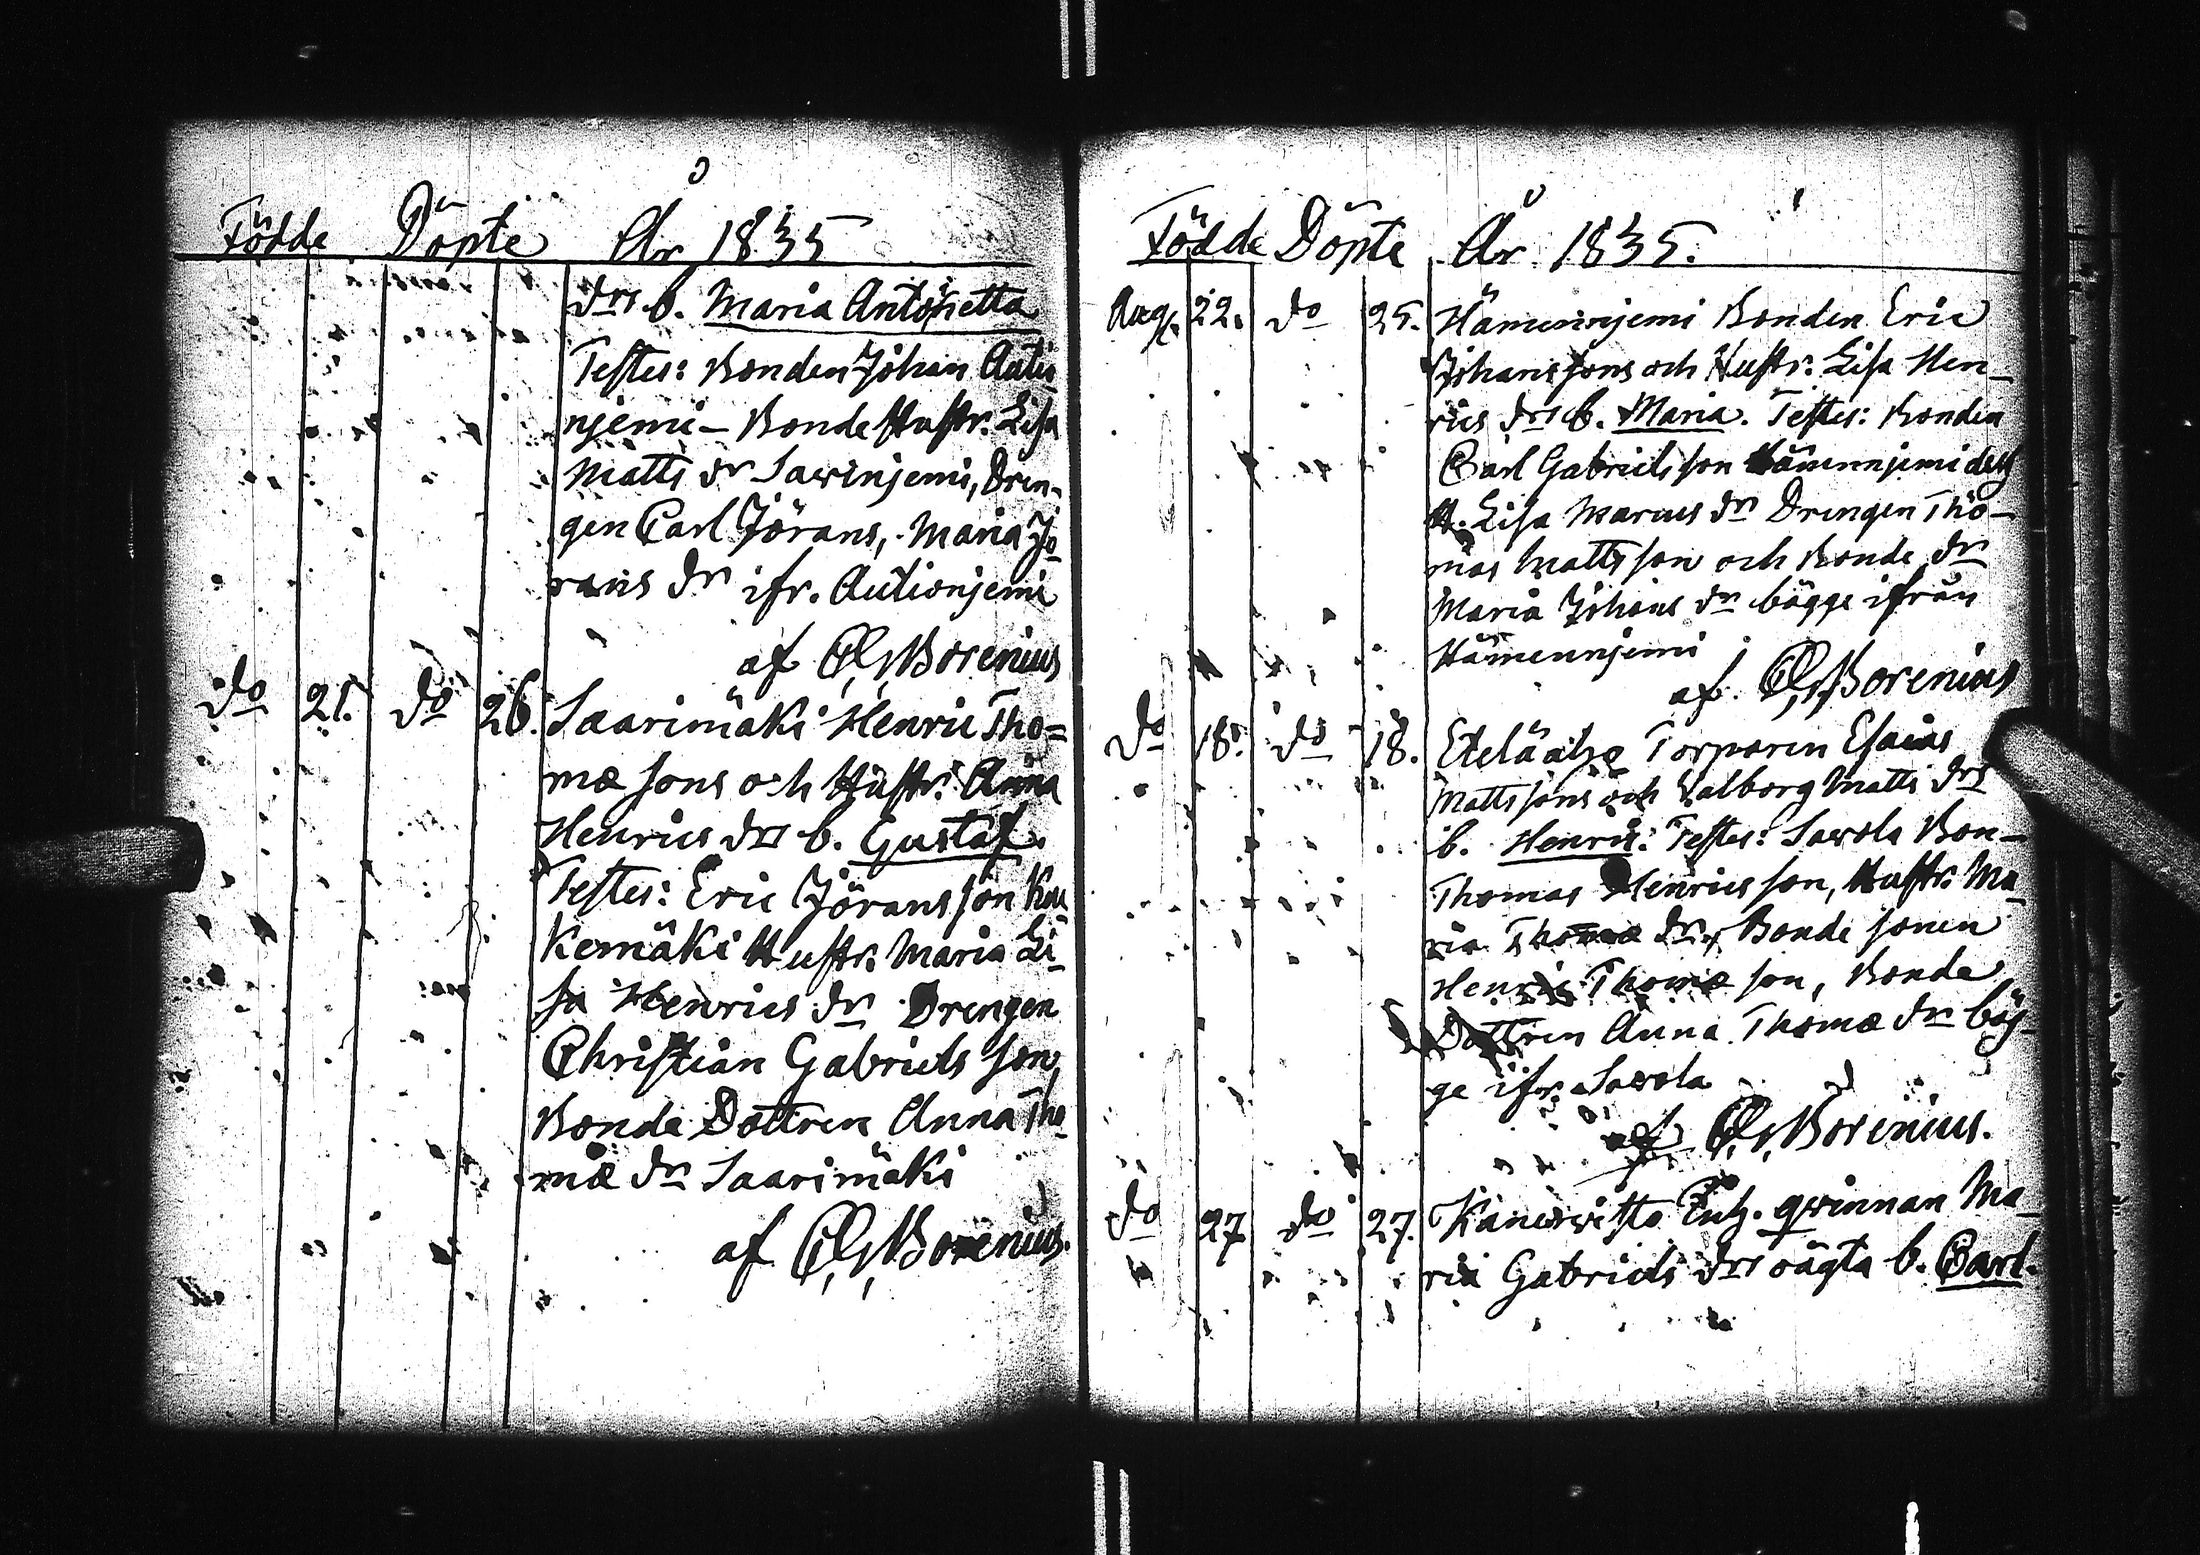 Födde Döpte År 1835
drs b. Maria Antonetta
Testes: Bonden Johan Autio
njemi – Bonde Hustr: Lisa
Matts dr Sawinjemi, Dren-
gen Carl Jörans, Maria Jö
rans dr ifr. Autionjemi
af C,G,Borenius
do 21. do 26. Saarimäki Henric Tho=
mæ sons och Hustr: Anna
Henrics drs b. Gustaf.
Testes: Eric Jörans son Kau
kemäki Hustr: Maria Li-
sa Henrics dr Drengen
Christian Gabriels son,
Bonde Dottren Anna Tho-
mæ dr Saarimäki
af C,G,Borenius.
Födde Döpte År 1835.
Aug. 22. do 25. Hämennjemi Bonden Eric
Johans sons och Hustr: Lisa Hen-
rics drs b. Maria. Testes: Bonden
Carl Gabriels son Hämennjemi dess
H. Lisa Marcus dr Drengen Tho-
mas Matts son och Bonde dr
Maria Johans dr bägge ifrån
Hämennjemi
af C,G,Borenius
do 18. do 18. Torparen Esaias
Matts sons och Valborg Matts drs
b. Henric: Testes: Sawola Bon-
Thomas Henrics son, Hustr: Ma-
ria Thomæ dr, Bonde sonen
Henric Thomæ son, Bonde
Dottren Anna Thomæ dr bäg-
ge ifr. Sawola
af C,G,Borenius.
do 27 do 27. qwinnan Ma-
ria Gabriels drs oägta b. Carl.